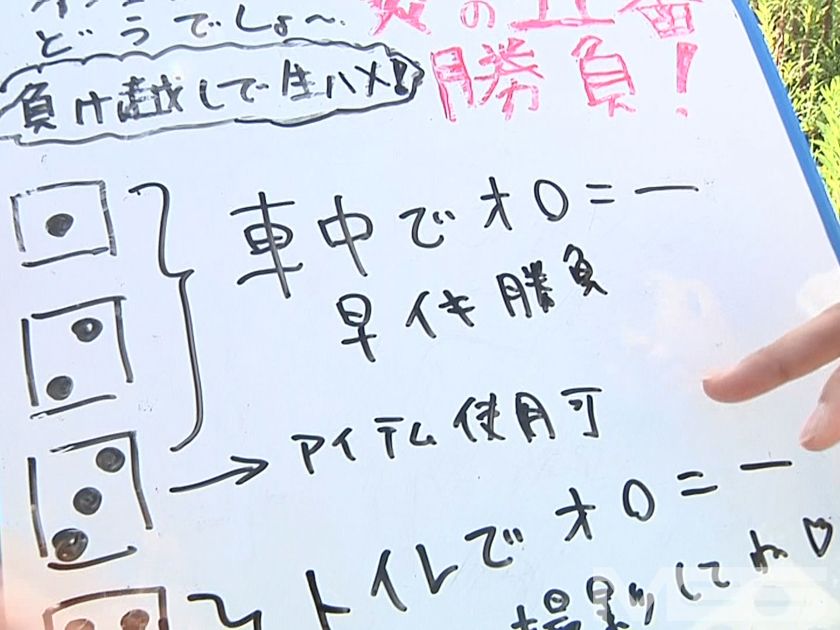 どうでしょ〜
の
勝負!
負け越しで生ハメ!
車中でオ〇ニー
早イキ勝負
アイテム使用可
トイレでオ〇ニー
撮影してね♡